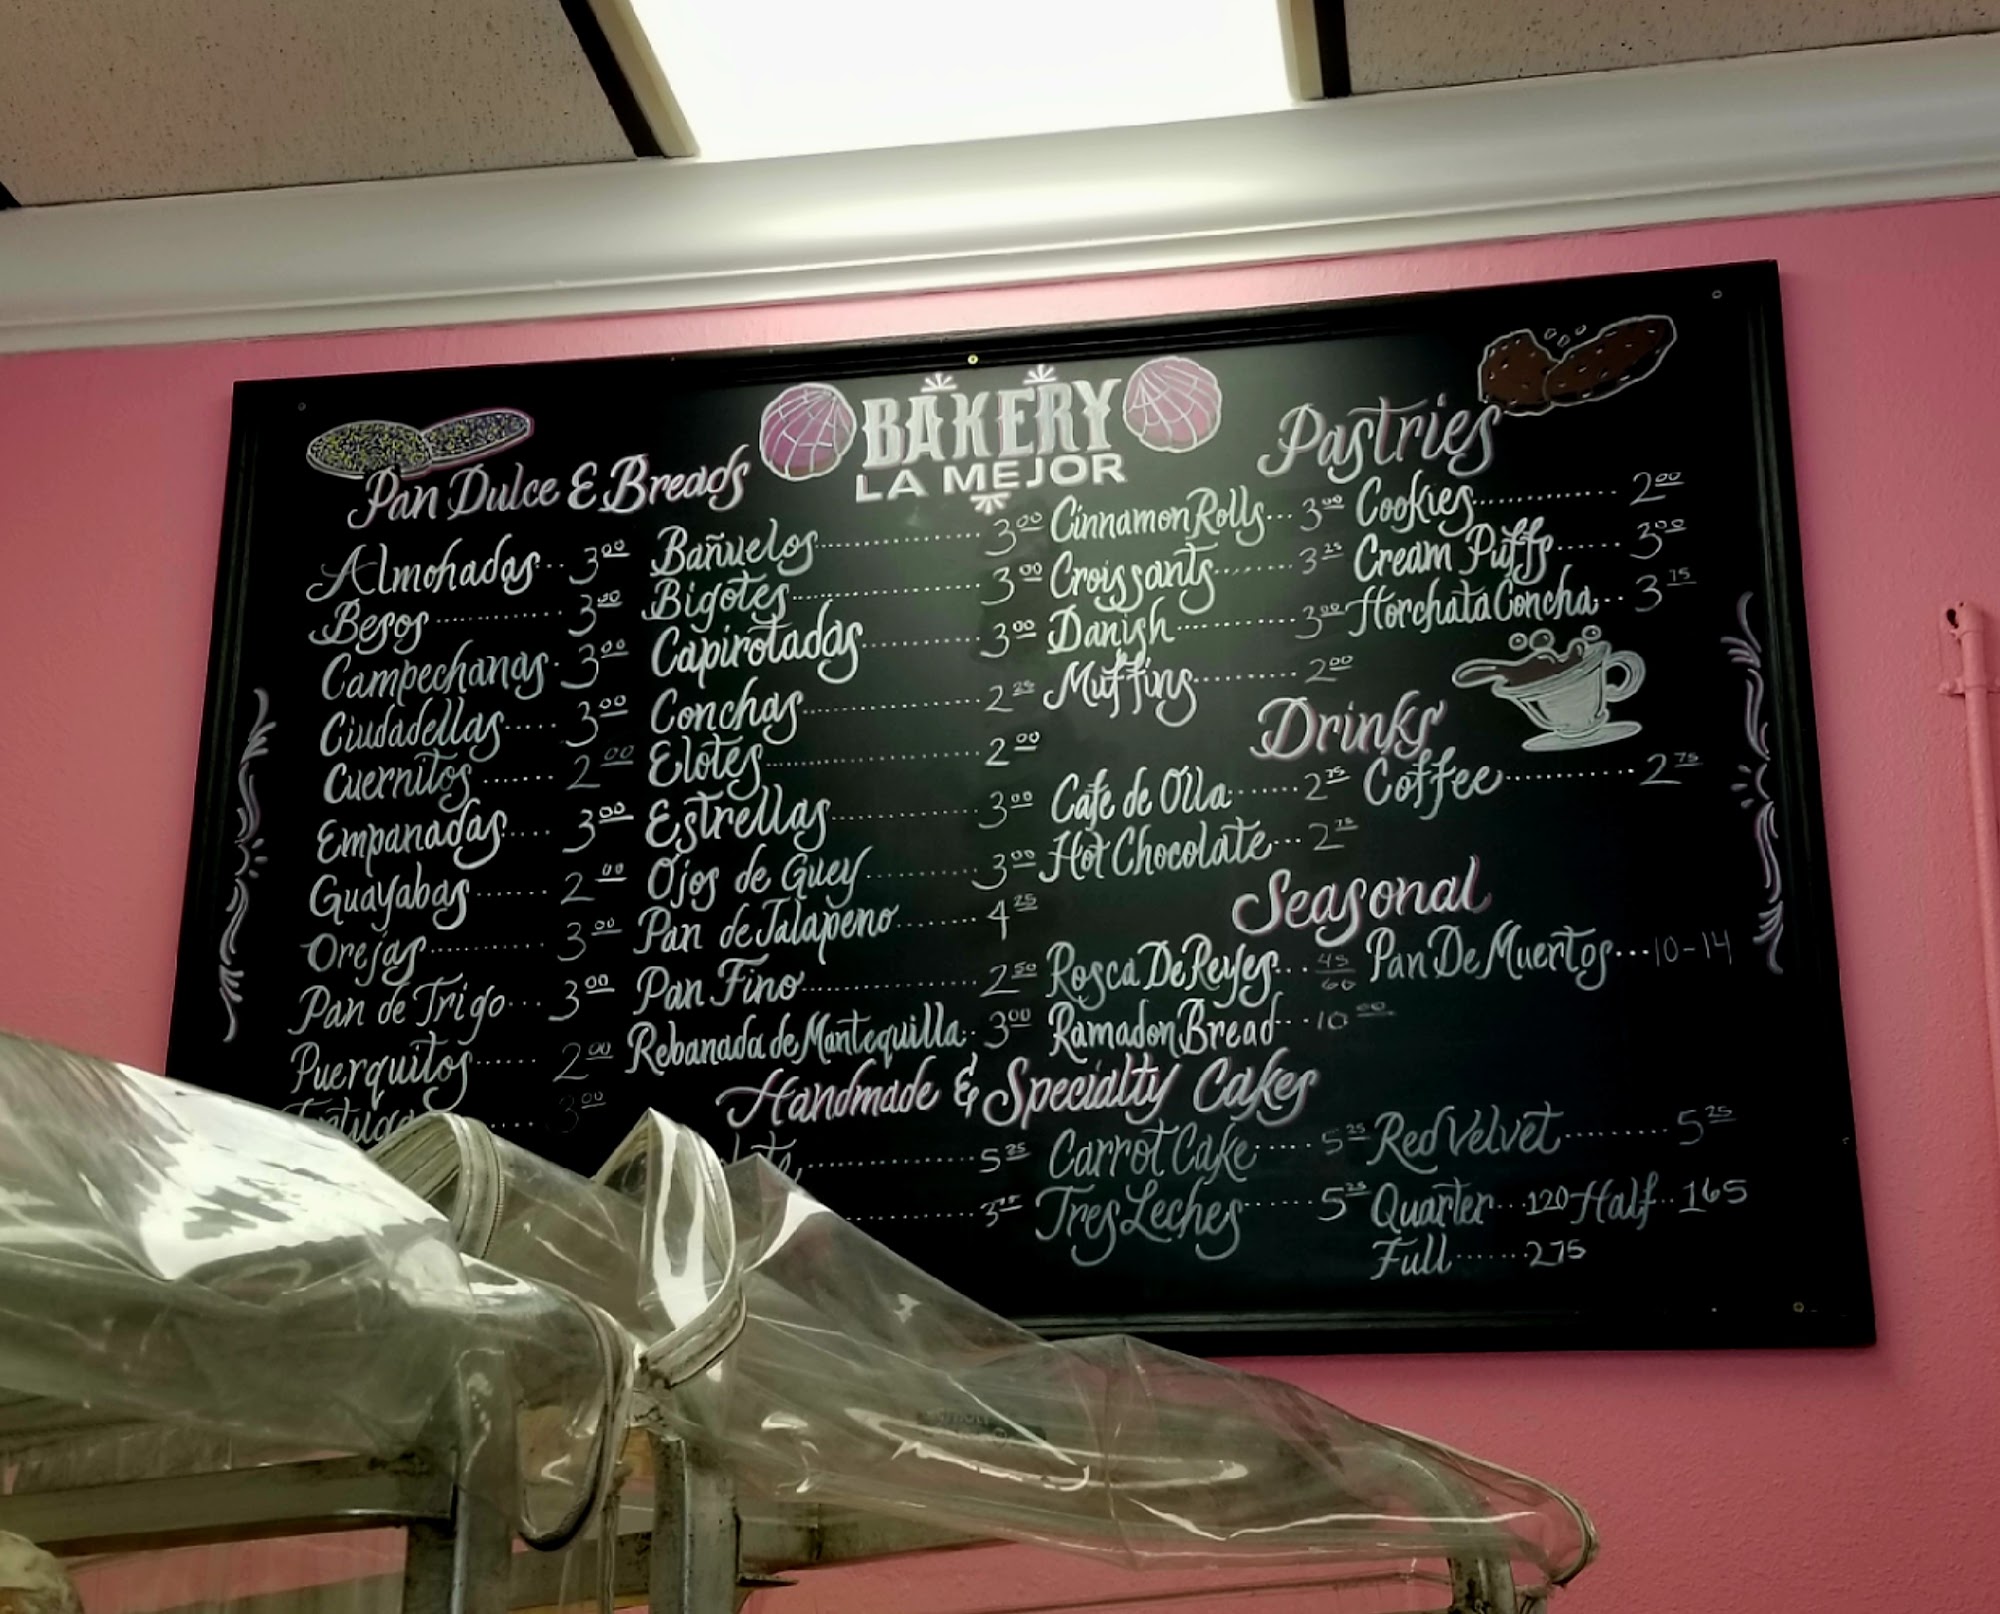 BAKERY
LA MEJOR
Pan Dulce & Breads
Almohadas.. 3.00
Besos.......... 3.00
Campechanas. 3.00
Ciudadellas..... 3.00
Cuernitos ...... 2.00
Empanadas.... 3.00
Guayabas...... 2.00
Orejas.......... 3.00
Pan de Trigo... 3.00
Puerquitos...... 2.00
.... 3.00
Bañuelos................ 3.00
Bigotes................... 3.00
Capirotadas............ 3.00
Conchas................. 2.25
Elotes..................... 2.00
Estrellas................ 3.00
Ojos de Guey.......... 3.00
Pan de Jalapeno....... 4.25
Pan Fino................ 2.50
Rebanada de Mantequilla.. 3.00
Pastries
Cinnamon Rolls... 3.00
Croissants........ 3.25
Danish........... 3.00
Muffins.......... 2.00
Cookies.............. 2.00
Cream Puffs...... 3.00
Horchata Concha.. 3.75
Drinks
Cafe de Olla...... 2.75
Hot Chocolate... 2.75
Coffee............ 2.75
Seasonal
Rosca De Reyes... 45 60
Ramadon Bread... 10.00
Pan De Muertos... 10-14
Handmade & Specialty Cakes
............... 5.25
............ 3.75
Carrot Cake..... 5.25
Tres Leches...... 5.25
Red Velvet......... 5.25
Quarter... 120 Half.. 165
Full...... 275